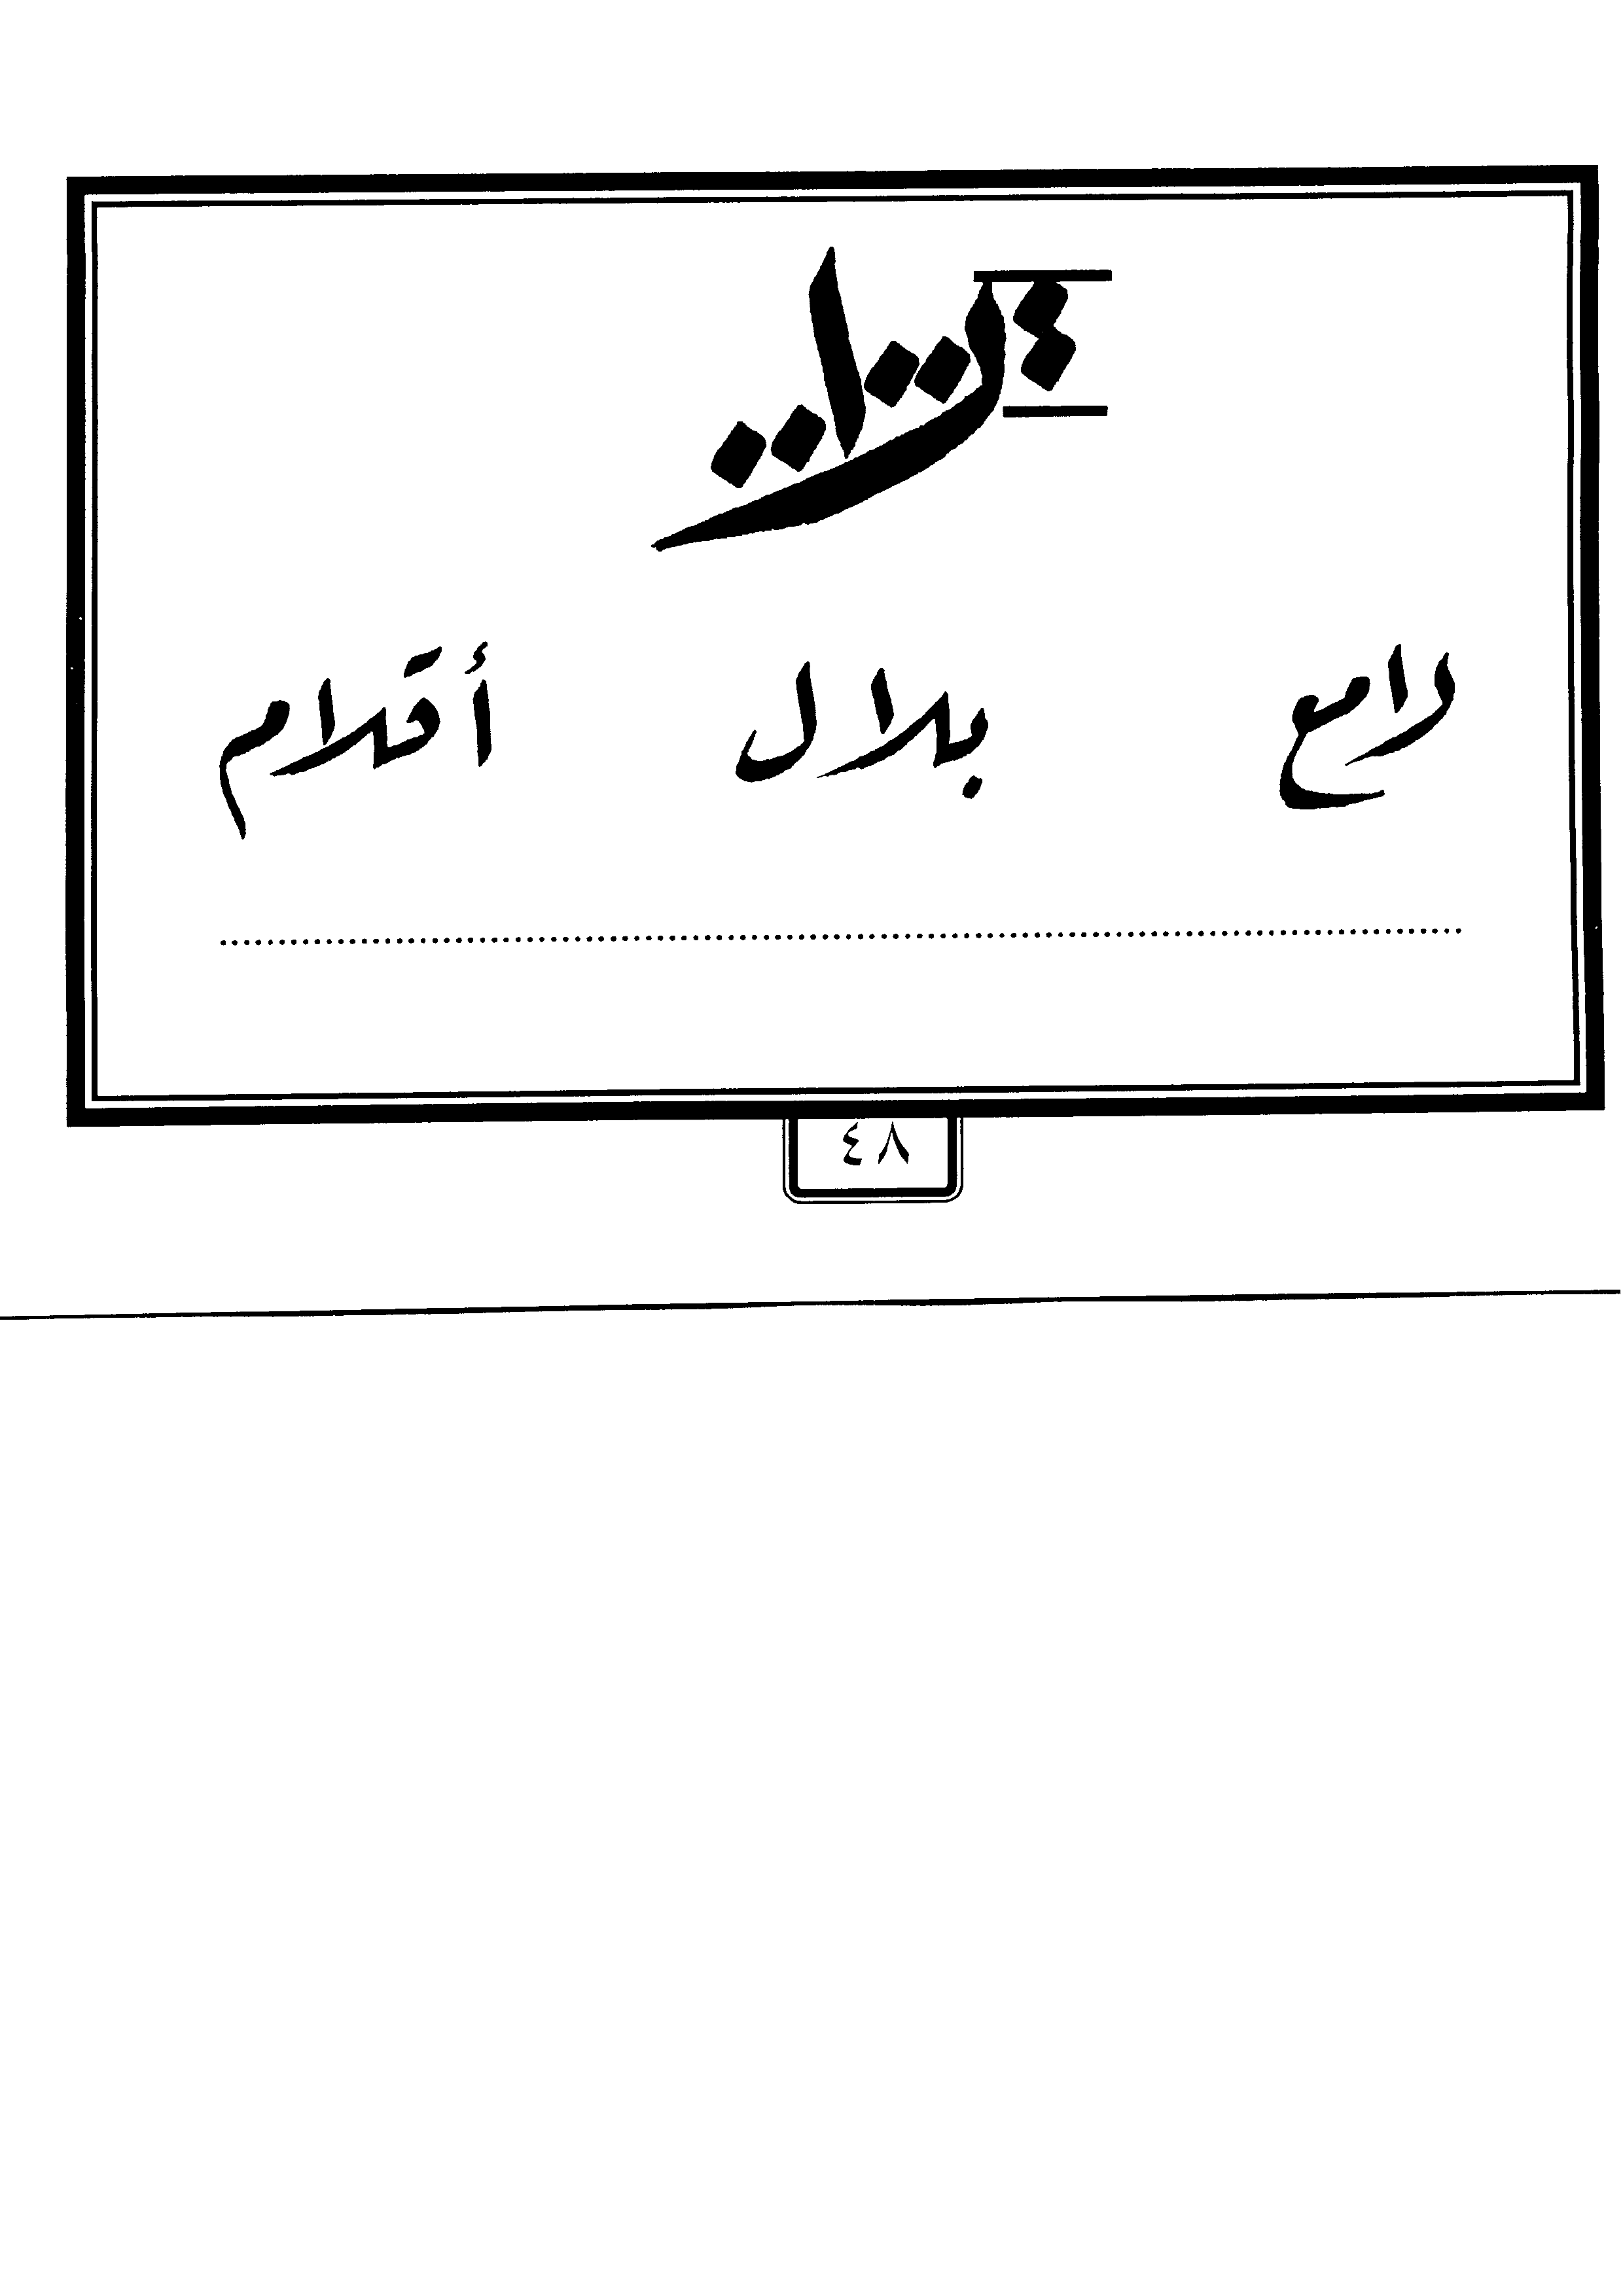 لا
لامع بلال أقلام
٤٨